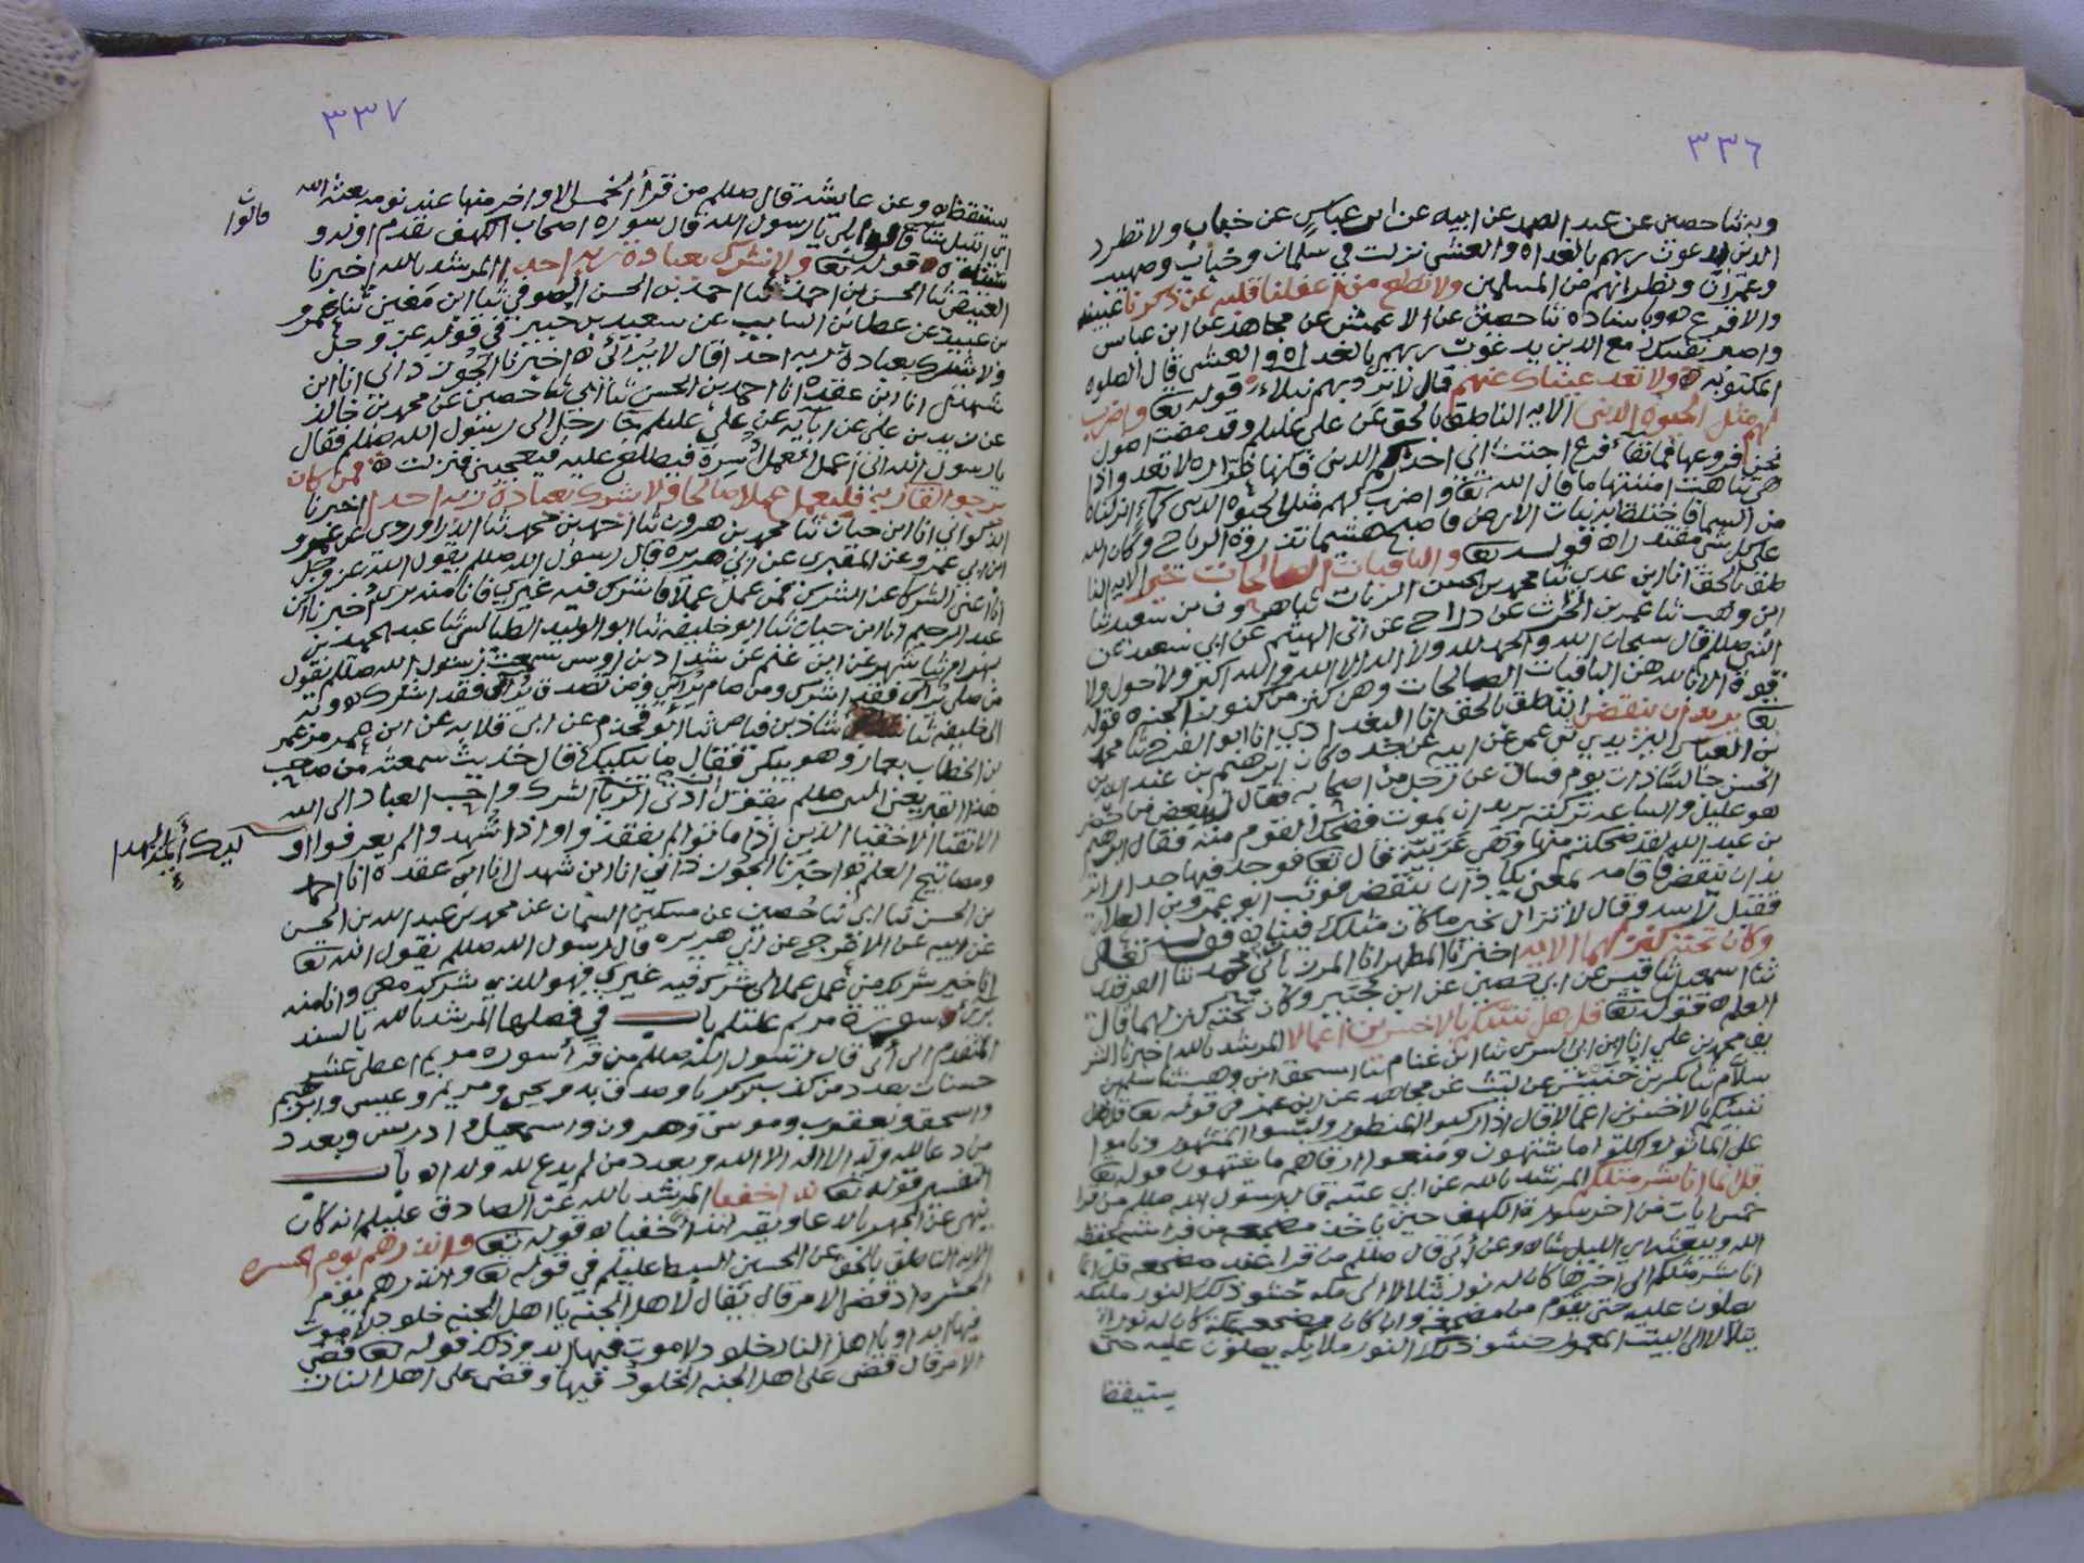 ٣٣٦
وبه ثنا حصين عن عبد الصمد عن ابيه عن ابن عباس عن خباب ولا تطرد
الذين يدعون ربهم بالغداه والعشي نزلت في سلمان وخباب وصهيب
ولا تطع من اغفلنا قلبه عن ذكرنا عيينه
والاقرع وباسناده ثنا حصين عن الاعمش عن مجاهد عن ابن عباس
واصبر نفسك مع الذين يدعون ربهم بالغداه والعشي قال الصلوه
المكتوبه ولا تعد عيناك عنهم قال قوله تعا واضرب
لهم مثل الحيوه الدنيا الايه الناطق بالحق عن علي عليلم وقد مضت اصول
نحن فروعها فما بقاء فرع
ما قال الله تعا واضرب لهم مثل الحيوه الدنيا كماء انزلناه
من السما فاختلط به نبات الارض فاصبح هشيما تذروه الرياح وكان الله
على كل شي مقتدرا قوله تعا والباقيات الصالحات خير الايه النا
طق بالحق انا ابن عدي ثنا محمد بن الحسن ثنا هرون بن سعيد ثنا
ابن وهب ثنا عمر بن الحرث عن دراج عن ابي الهيثم عن ابي سعيد عن
النبي صللم قال سبحان الله والحمد لله ولا اله الا الله والله اكبر ولا حول ولا
قوة الا بالله هن الباقيات الصالحات وهن كنز من كنوز الجنه قوله
تعا يريد ان ينقض الناطق بالحق انا البغدادي انا ابو الفرج ثنا محمد
بن العباس اليزيدي عن ابيه عن جده كان ابرهيم بن عبد الله بن
الحسن جالسا ذات يوم فسال عن رجل من اصحابه فقال بعض من حضر
هو عليل والساعه تركته يريد ان يموت فضحك القوم منه فقال ابرهيم
بن عبد الله لقد ضحكتم منها وهي عربية قال تعا فوجدا فيها جدارا ير
يد ان ينقض فاقامه بمعنى يكاد ان ينقض فوثب ابو عمرو بن العلا
فقبل راسه وقال لا نزال بخير ما كان مثلك فينا قوله تعالى
وكان تحته كنز لهما الايه اخبرنا المطهر انا
ثنا اسمعيل ثنا قيس عن ابي حصين عن ابن جبير وكان تحته كنز لهما قال
العلم قوله تعا قل هل ننبئكم بالاخسرين اعمالا المرشد بالله اخبرنا الشر
يف محمد بن علي انا ابن ابي السري ثنا ابن غنام ثنا اسحق ابن وهب ثنا سلم بن
سلام ثنا بكر بن خنيس عن ليث عن مجاهد عن ابن عمر في قوله تعا قل هل
ننبئكم بالاخسرين اعمالا قال
قوله تعا
قل انما انا بشر مثلكم المرشد بالله عن ابي قال رسول الله صللم من قرا
خمس ايات من اخر سورة الكهف حين ياخذ مضجعه من فراشه حفظه
الله ويبعثه اي الليل شا وعن ابي قال صللم من قرا عند مضجعه قل انما
انا بشر مثلكم الى اخرها كان له نور يتلالا الى مكه حشو ذلك النور مليكه
يصلون عليه حتى يقوم من مضجعه وان كان مضجعه بمكة كان له نورا
يتلالا الى البيت المعمور حشو ذلك النور ملايكه يصلون عليه حتى
يستيقظ
٣٣٧
يستيقظ وعن عايشه قال صللم من قرأ الخمس الاواخر منها عند نومه بعثه الله
قالوا
اي الليل شا قالوا بلى يا رسول الله قال سوره اصحاب الكهف
قوله تعا ولا يشرك بعبادة ربه احدا المرشد بالله اخبرنا
العتيقي ثنا الحسن بن احمد ثنا احمد بن الحسن الصوفي ثنا ابن معين ثنا عمرو
بن عبيد عن عطا بن السايب عن سعيد بن جبير في قوله عز وجل
ولا يشرك بعبادة ربه احدا قال لا يرائي اخبرنا الجوزداني انا ابن
شهدل انا ابن عقده انا احمد بن الحسن ثنا ابي ثنا حصين عن محمد بن خالد
عن زيد بن علي عن ابايه عن علي عليلم جا رجل الى رسول الله صللم فقال
يا رسول الله اني اعمل العمل اسره فيطلع عليه فيعجبني فنزلت فمن كان
يرجو لقا ربه فليعمل عملا صالحا ولا يشرك بعبادة ربه احدا اخبرنا
الذكواني انا ابن حيان ثنا محمد بن هرون ثنا احمد بن محمد ثنا الدراوردي عن عمرو
ابن ابي عمرو عن المقبري عن ابي هريره قال رسول الله صللم يقول الله عز وجل
انا اغنى الشركا عن الشرك فمن عمل عملا فاشرك فيه غيري فانا منه بري اخبرنا ابن
عبد الرحيم انا ابن حيان ثنا ابو خليفه ثنا ابو الوليد الطيالسي ثنا عبد الحميد بن
بهرام ثنا شهر عن ابن غنم عن شداد بن اوس سمعت رسول الله صللم يقول
من صلى يرائي فقد اشرك ومن صام يرائي ومن تصدق يرائي فقد اشرك وبه
الى خليفه ثنا شاذ بن فياض ثنا ابو قحذم عن ابي قلابه عن ابن عمر مر عمر
بن الخطاب بمعاذ وهو يبكي فقال ما يبكيك قال حديث سمعته من صاحب
هذا القبر يعني النبي صللم يقول ادنى الريا الشرك واحب العباد الى الله
الاتقيا الاخفيا الذين اذا ماتوا لم يفقدوا واذا شهدوا لم يعرفوا او
ليك أيمة الهدا
ومصابيح العلم اخبرنا الجوزداني انا ابن شهدل انا ابن عقده انا احمد
بن الحسن ثنا ابي ثنا حصين عن مسكين السمان عن محمد بن عبد الله بن الحسن
عن ابيه عن الاعرج عن ابي هريره قال رسول الله صللم يقول الله تعا
انا خير شريك من عمل عملا اشرك فيه غيري فهو للذي شركه معي وانا منه
برئ سورة مريم عليلم باب في فضلها المرشد بالله بالسند
المتقدم الى ابي قال رسول الله صللم من قرأ سوره مريم اعطي عشر
حسنات بعدد من كذب بزكريا وصدق به ويحيى ومريم وعيسى وابرهيم
واسحق ويعقوب وموسى وهرون واسمعيل وادريس وبعدد
من دعا لله ولدا لا اله الا الله وبعدد من لم يدع لله ولدا باب
التفسير قوله تعا ندا خفيا المرشد بالله عن الصادق عليلم انه كان
ينهى عن الجهر بالدعا ويقرا ندا خفيا قوله تعا وانذرهم يوم الحسره
الايه الناطق بالحق عن الحسين السبط عليلم في قوله تعا وانذرهم يوم
الحسره اذ قضي الامر قال يقال لاهل الجنه يا اهل الجنه خلود لا موت
فيها ابدا ويا اهل النار خلود لا موت فيها ابدا وذلك قوله تعا قضي
الامر قال قضي على اهل الجنه الخلود فيها وقضي على اهل النار